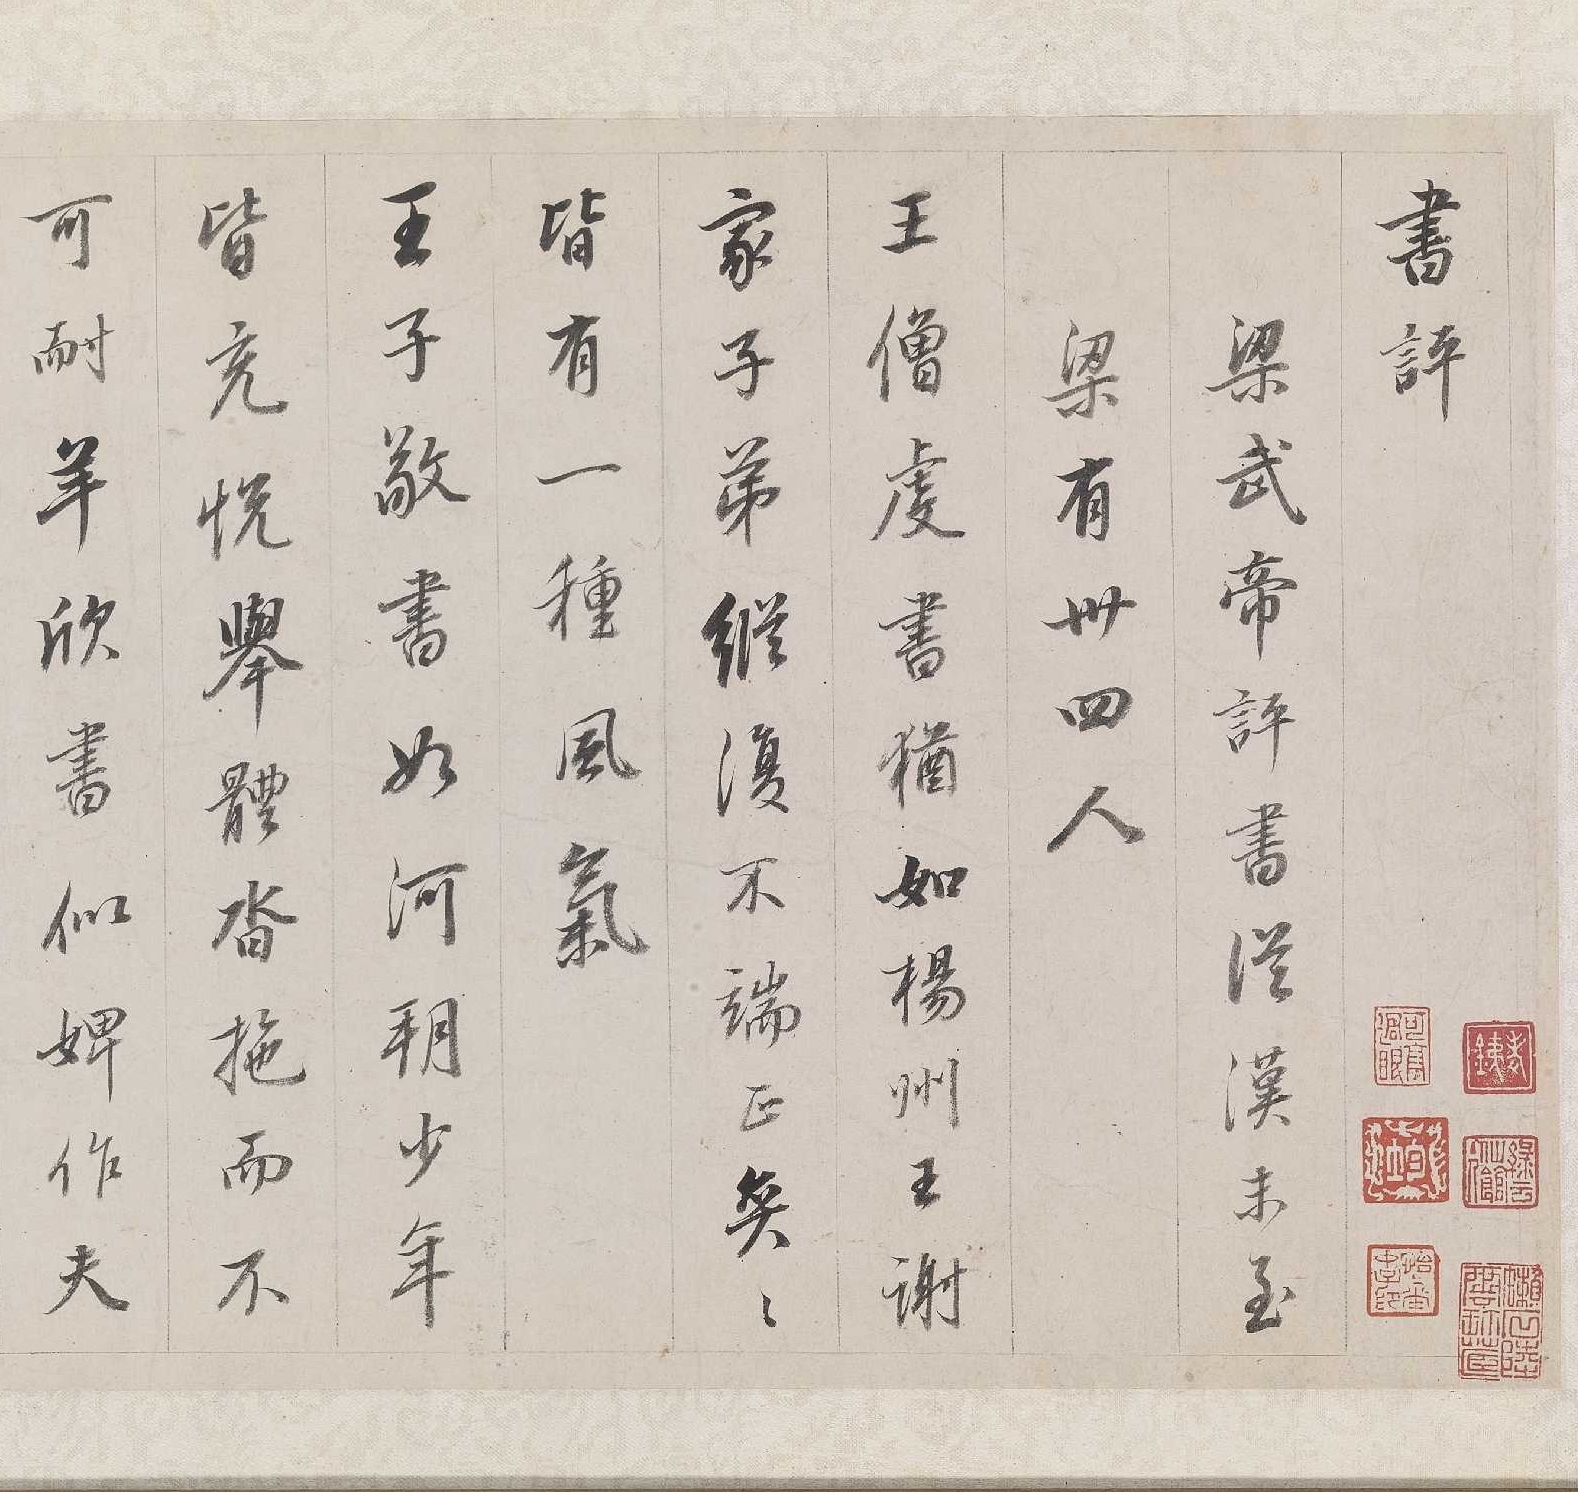 書評
梁武帝評書從漢末至
梁有卅四人
王僧虔書猶如楊州王謝
家子弟縱復不端正奕〻
皆有一種風氣
王子敬書如河朔少年
皆充悅舉體沓拖而不
可耐羊欣書似婢作夫